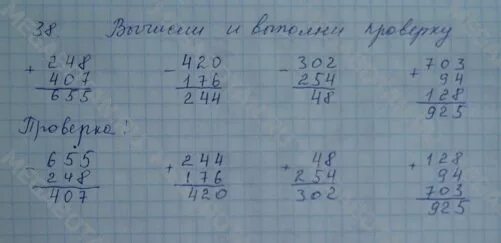 38. Вычисли и выполни проверку
+ 248 - 420 - 302 + 703
407 176 254 94
655 244 48 128
925
Проверка:
- 655 + 244 + 48 + 128
248 176 254 94
407 420 302 703
925